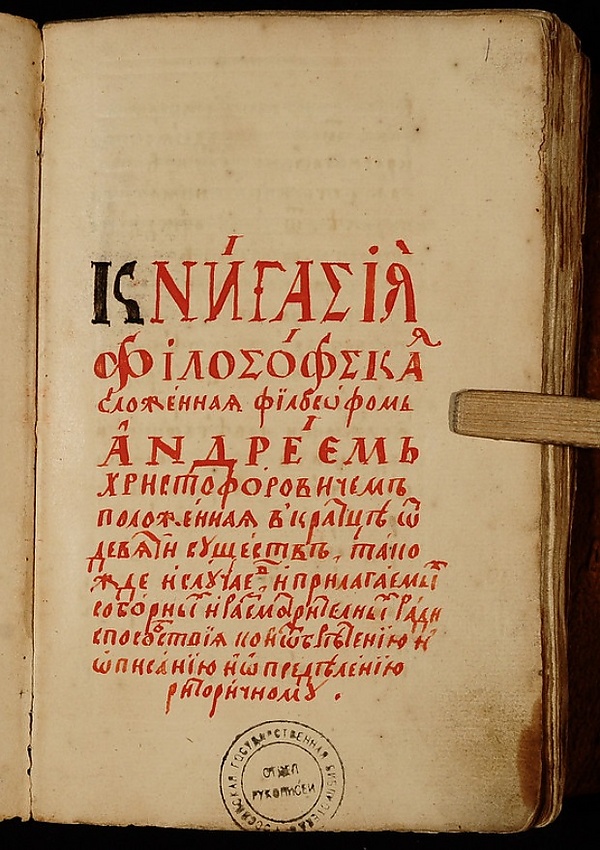 1
КНИ́ГА СІѦ̀
ФІЛОСО́ФСКАѦ
сложе́ннаѧ філосо́фомъ
А҆НДРЕ́ЄМЪ
ХРИСТОФОРОВИЧЕМЪ
положе́ннаѧ в̾кра́тцѣ ѿ
девѧти существъ, тако
жде и случаеⷡ, и прилагаемыⷯ
соборныⷯ и расмотрителныⷯ ради
способствїѧ ко и҆зъѡбрѣтенїю и
ѡписанїю и ѡпредѣленїю
риторичному.
РОССИЙСКАЯ ГОСУДАРСТВЕННАЯ БИБЛИОТЕКА
ОТДЕЛ
РУКОПИСЕЙ